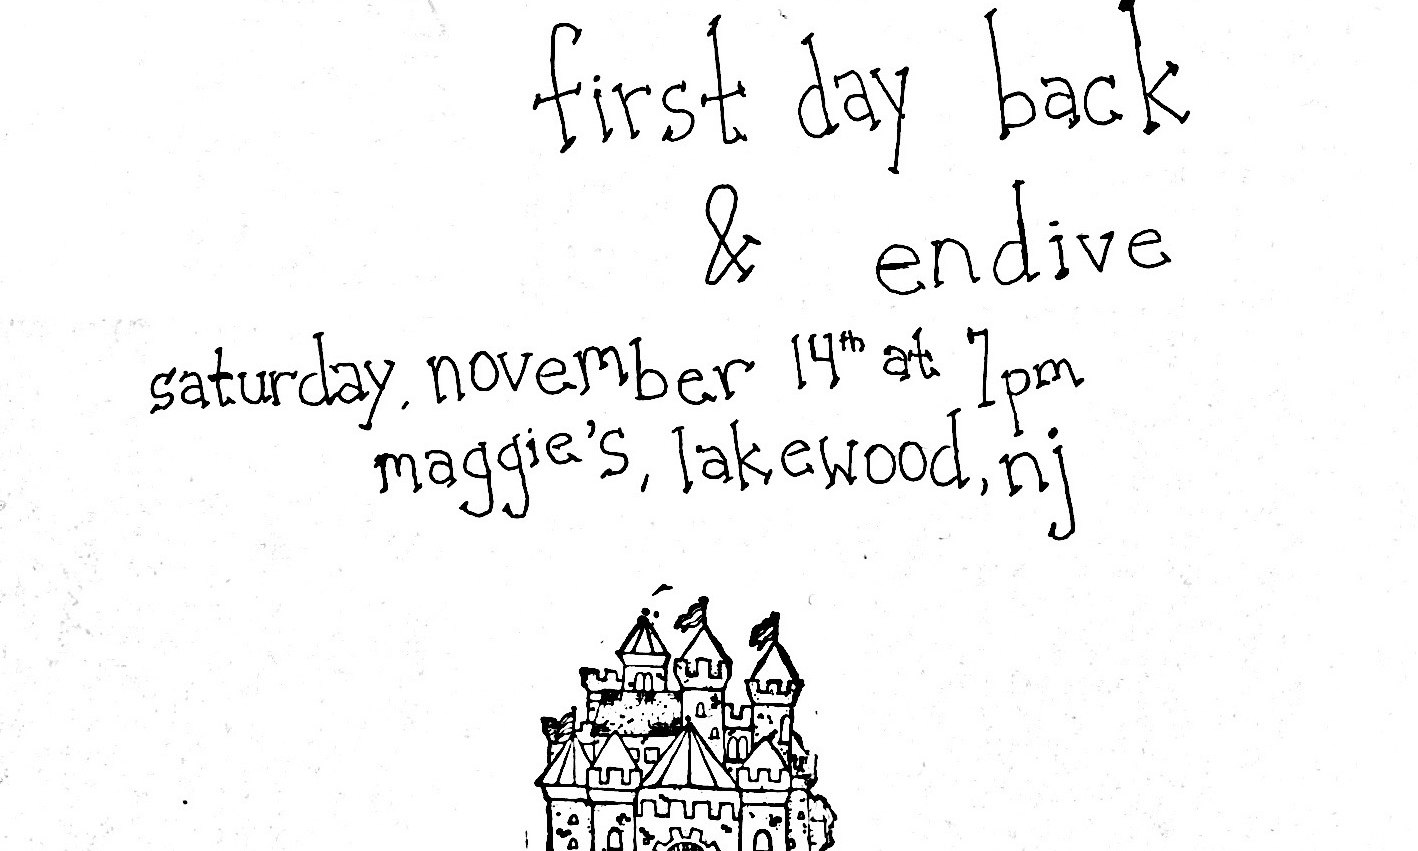 first day back
& endive
saturday, november 14th at 7pm
maggie's, lakewood, nj